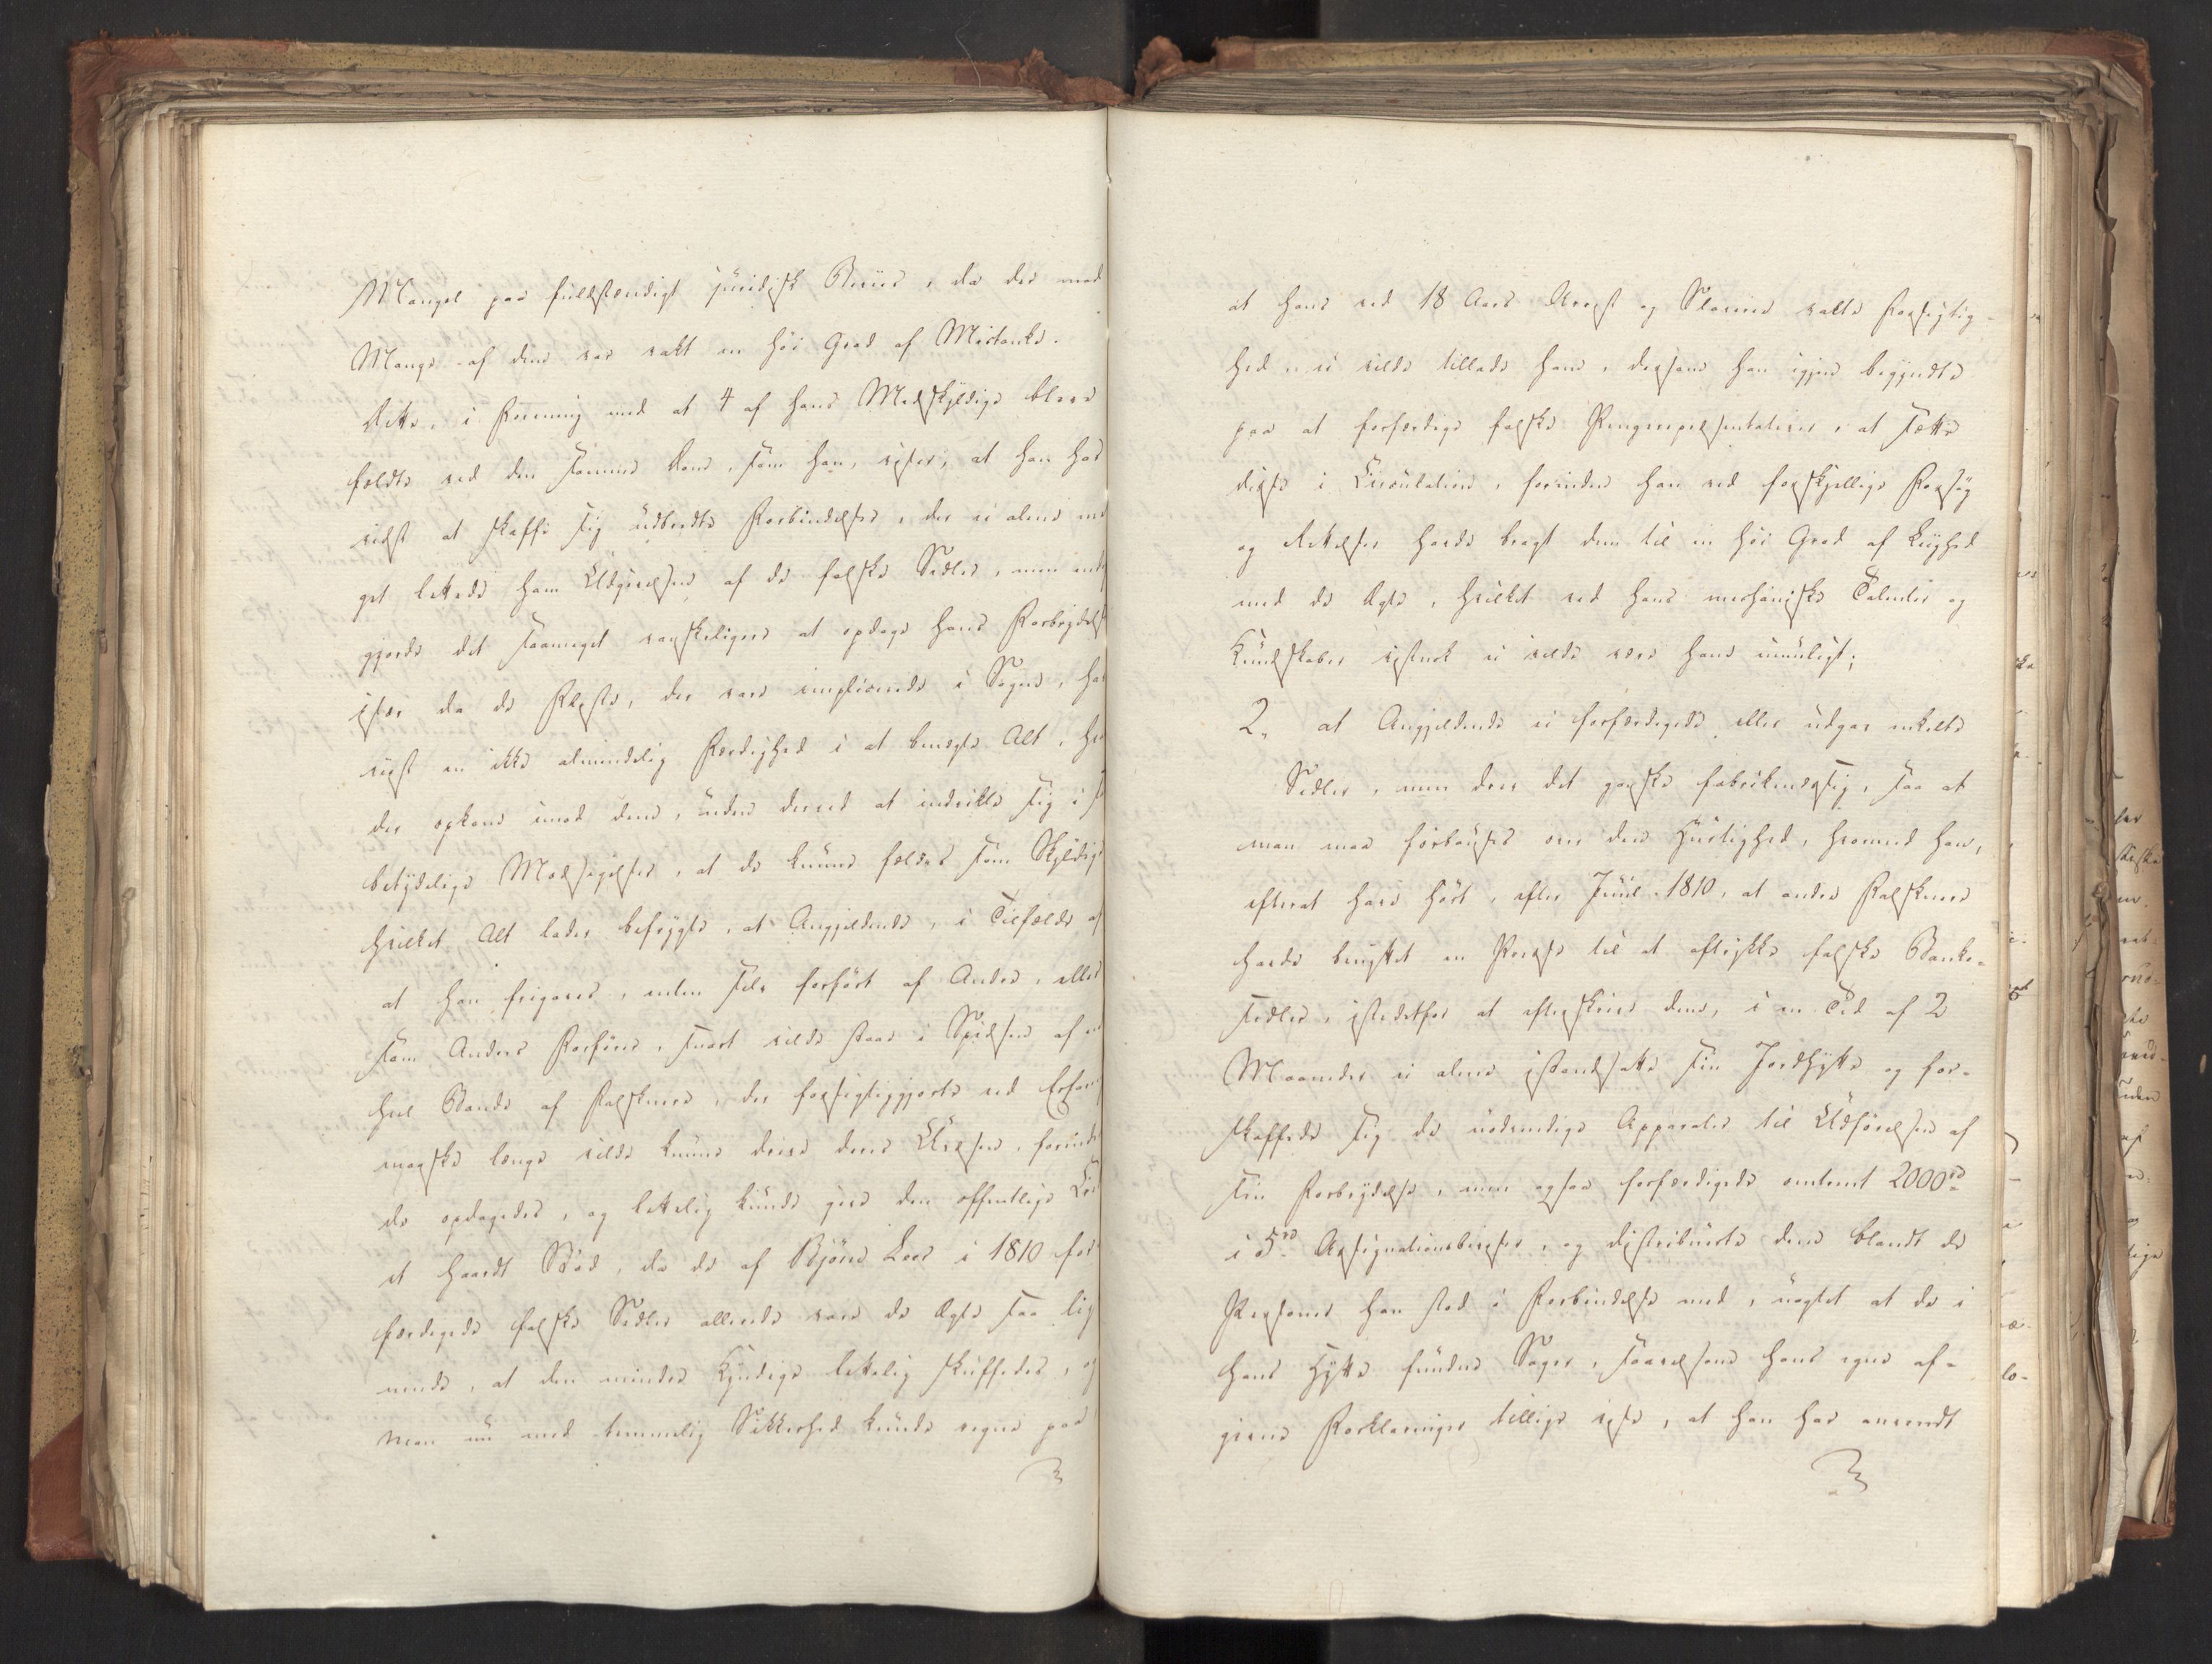 Mangel paa fuldstændigt juridisk Beviis, da der mod
Mange af dem var vakt en høi Grad af Mistanke.
Dette, i Forening med at 4 af hans Medskyldige bleve
fældte ved den samme Dom, som han, viser, at han har
vidst at skaffe sig udbredte Forbindelser, der ei alene me
get lettede ham Udgivelsen af de falske Sedler, men end
gjorde det saameget vanskeligere at opdage hans Forbrydelse
især da de Fleste, der vare implicerede i Sagen, har
viist en ikke almindelig Færdighed i at benægte Alt, hva
der opkom imod dem, uden derved at indvikle sig i s
betydelige Modsigelser, at de kunne fældes som Skyldige
hvilket Alt lader befrygte, at Angjeldende, i Tilfælde af
at han frigaves, enten selv forført af Andre, eller
som Andres Forfører, snart vilde staae i Spidsen af en
heel Bande af Falsknere, der forsigtiggjorte ved Erfaring
maaske længe vilde kunne drive deres Uvæsen, forinden
de opdagedes, og lettelig kunde give den offentlige Cre
et haardt Stød, da de af Bjørn Loos i 1810 for
færdigede falske Sedler allerede vare de Ægte saa lig
nende, at den mindre Kyndige lettelig skuffedes, og
man nu med temmelig Sikkerhed kunde regne paa
at hans ved 18 Aars Arrest og Slaverie vakte Forsigtig-
hed ei vilde tillade ham, dersom han igjen begyndte
paa at forfærdige falske Pengerepræsentativer, at sætte
disse i Circulation, forinden han ved forskjellige Forsøg
og Rettelser havde bragt dem til en høi Grad af Liighed
med de Ægte, hvilket ved hans mechaniske Talenter og
Kundskaber vistnok ei vilde være ham umuligt;
2, at Angjeldende ei forfærdigede eller udgav enkelte
Sedler, men drev det ganske fabrikmæssig, saa at
man maa forbauses over den Hurtighed, hvormed han,
efterat have hørt, efter Juul 1810, at andre Falsknere
havde benyttet en Presse til at aftrykke falske Banko-
sedler, istedetfor at efterskrive dem, i en Tid af 2
Maaneder ei alene istandsatte sin Jordhytte og for-
skaffede sig de nødvendige Apparater til Udførelsen af
sin Forbrydelse, men ogsaa forfærdigede omtrent 2000 rd
i 5 rd Assignationsbeviser, og distribuerte dem blandt de
Personer han stod i Forbindelse med, uagtet at de i
hans Hytte fundne Sager, saavelsom hans egne af-
givne Forklaringer tillige vise, at han har anvendt